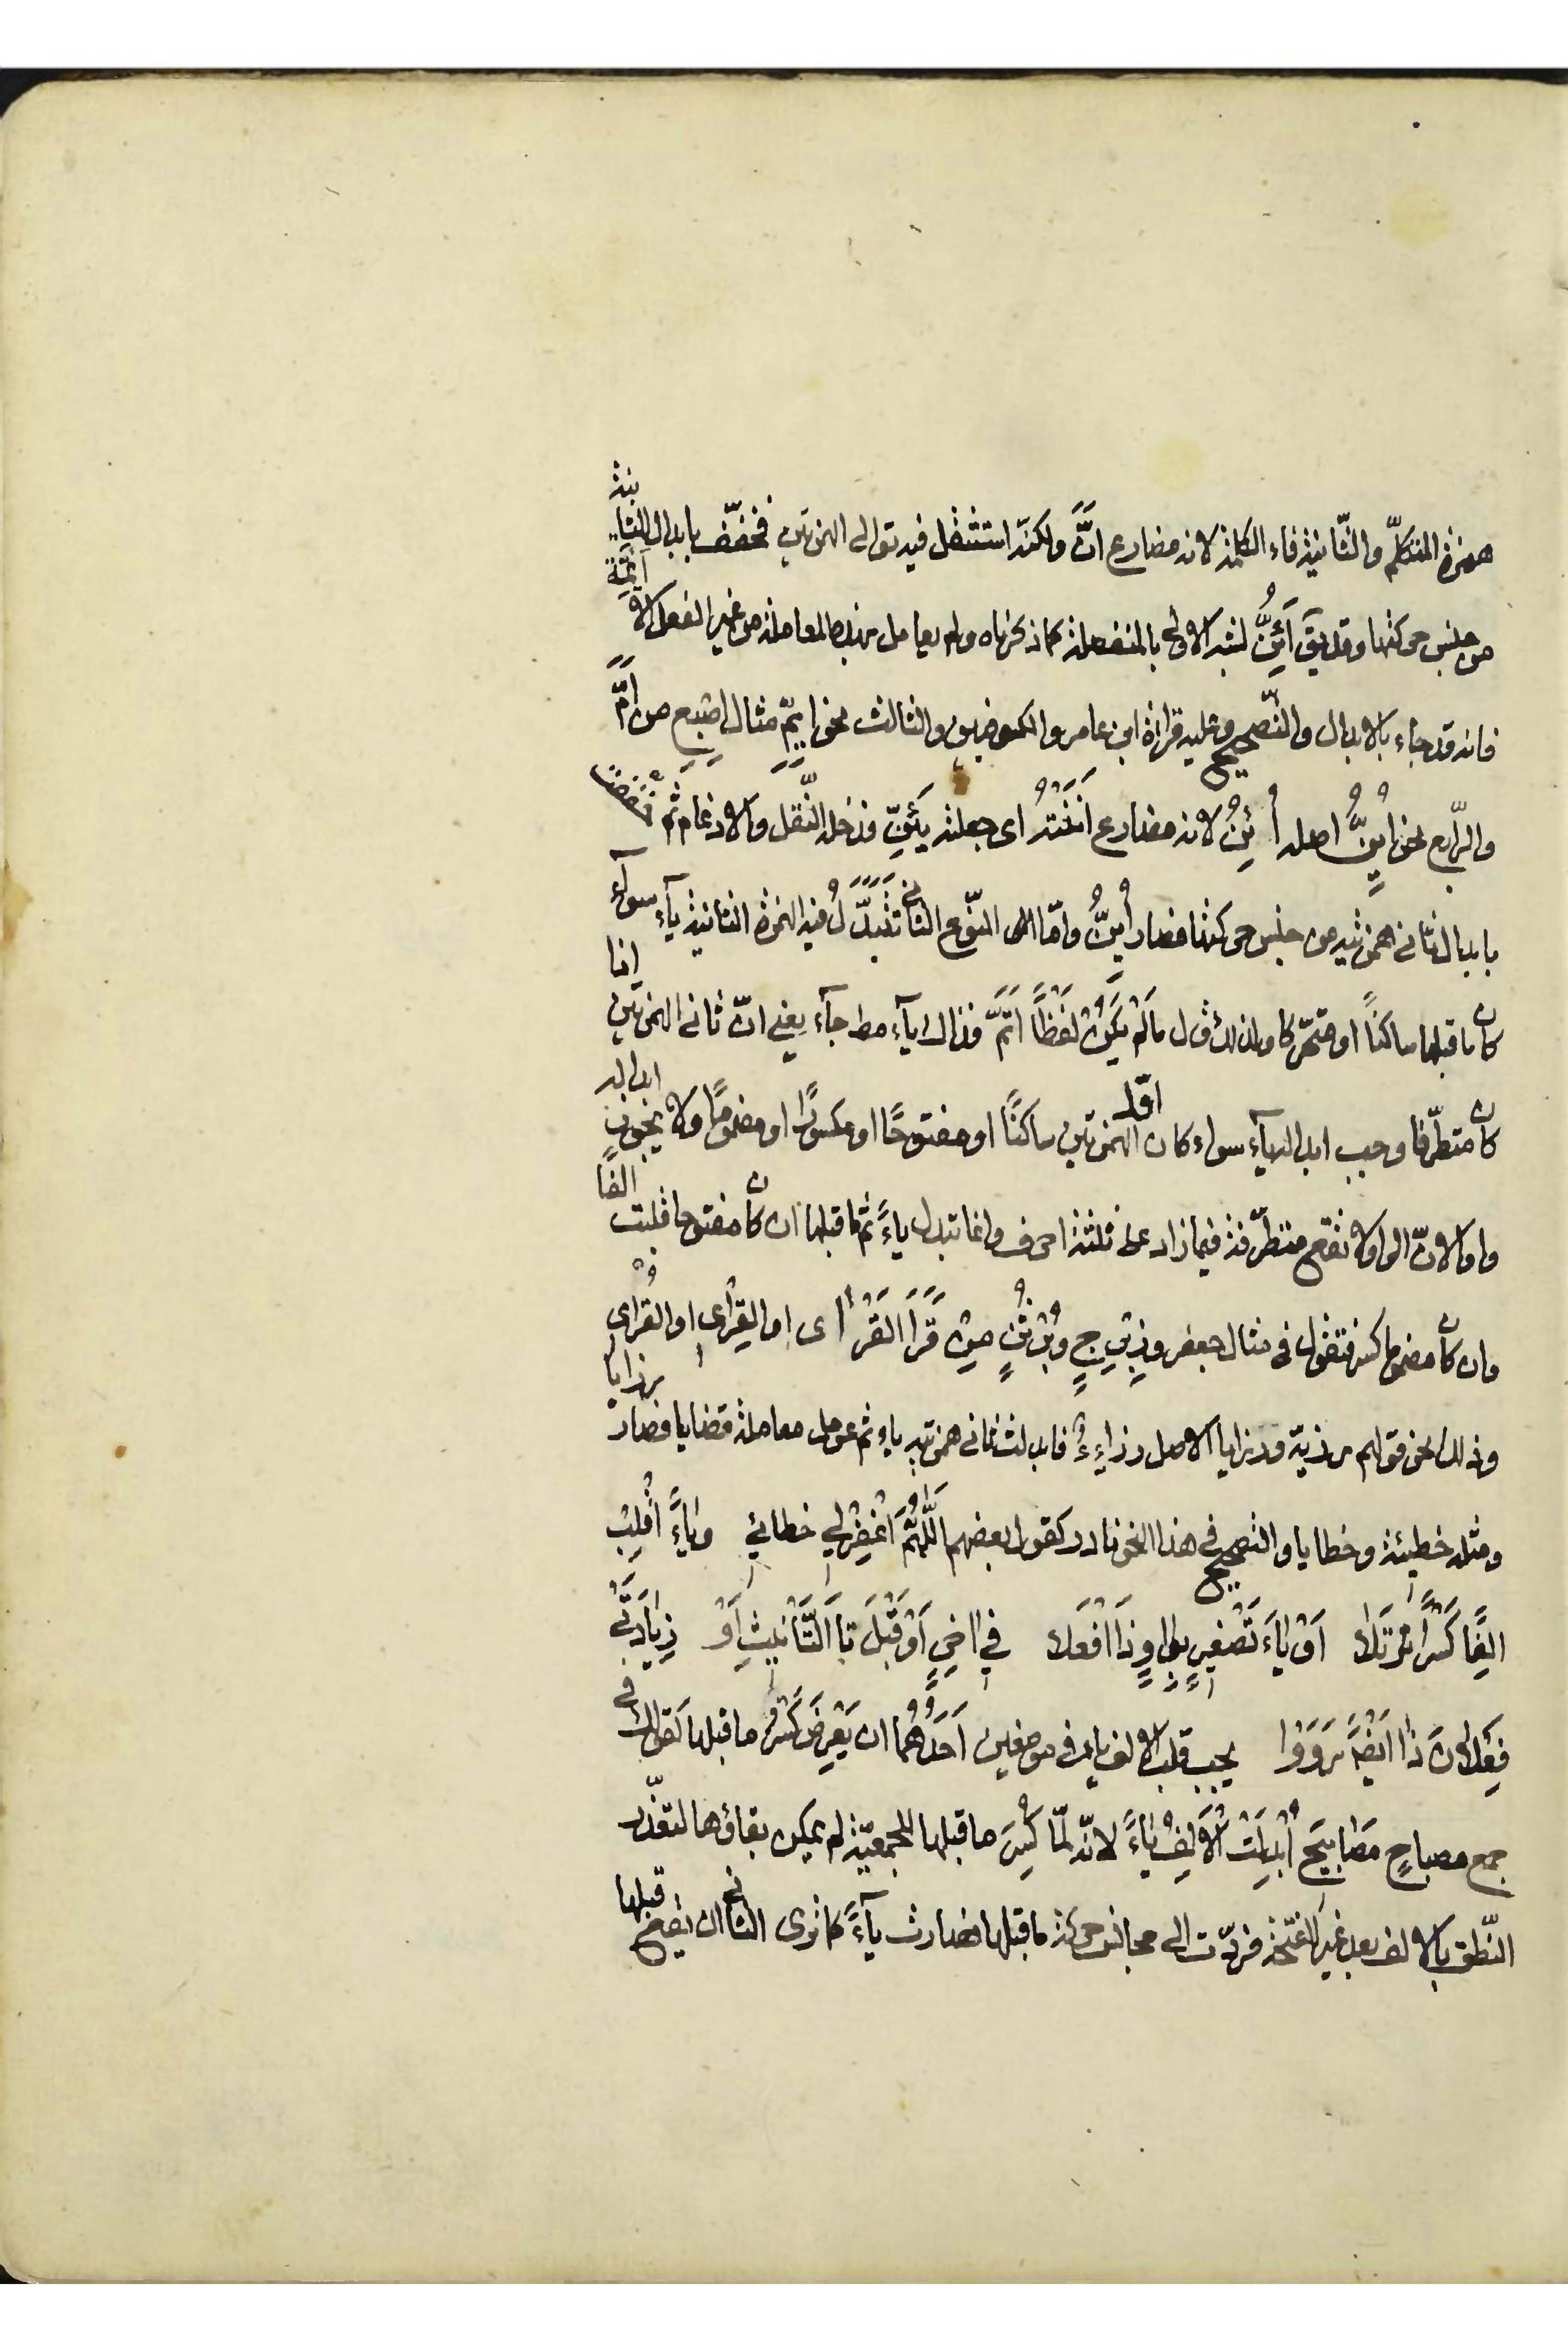 همزة المتكلّم والثّانية فاء الكلمة لانه مضارع انّ ولكنّه استثقل فيه توالى الهمزتين فخفّف بابدال الثانية
من جنس حركتها وقد يقَ أَئِنُّ لشبه الاولى بالمنفصلة كما ذكرناه ولم يعامل بهذه المعاملة من غير الفعل الا أئمّة
فانه قد جاء بالابدال والتّصحيح وعليه قراءة ابن عامر والكوفيون والثالث نحو ايِمّ مثال اصبِع من اَمَّ
والرّابع نحو اُيِنُّ اصله أُئِنُّ لانه مضارع اَنَنْتُه اى جعلته يَئِنّ فدخله النّقل والادغام ثم خُفّف
بابدال ثانى همزتيه من جنس حركتها فصار أُيِنُّ وامّا النّوع الثانى تُبَدّلُ فيه الهمزة الثانية يآء سوآء
كان ما قبلها ساكنًا او متحرّكا ولذلك قال مَا لَمْ يَكُنْ لَفْظًا اَتَمَّ فذاك يآء مط جآء يعنى انّ ثانى الهمزتين اذا
كان متطرّفا وجب ابداله يآء سواء كان اوّل الهمزتين ساكنًا او مفتوحًا او مكسورًا او مضمومًا ولا يجوز ابداله
واوا لانّ الواو لا تقع متطرّفة فيما زاد على ثلثة احرف وانما تبدل ياءً ثم ما قبلها ان كان مفتوحا قلبت الفًا
وان كان مضموما كسر فتقول فى مثال جعفر وزِبْرِجٍ وبُرْثُنٍ مِنْ قَرَأَ القَرْأى او القِرْأى او القُرْأى
وذلك نحو قولهم رزيّة ورزايا الاصل رزاءِءُ فابدلت ثانى همزتيه ياء ثم عومل معاملة قضايا فصار رزايا
ومثله خطيئة وخطايا والتصحيح فى هذا النحو نادر كقول بعضهم اَللّٰهُمَّ اغْفِرْ لِي خطائئِ وَيَاءً اقْلِبْ
اَلِفًا كَسْرًا تَلَا اَوْ يَاءَ تَصْغِيرٍ بِوَاوٍ ذَا افْعَلا فِي اٰخِرٍ اَوْ قَبْلَ تَا التَّأنِيثِ اَوْ زِيَادَتَي
فَعْلَانَ ذَا اَيْضًا رَوَوْا يجب قلب الالف ياء فى موضعين اَحَدُهُمَا ان يَعْرِضَ كَسْرُ ما قبلها كقولك فى
جمع مصباحٍ مَصَابِيحَ اُبْدِلَتْ اْلاَلِفُ يَاءً لانّه لمّا كُسِرَ ما قبلها للجمعيّة لم يمكن بقاؤها لتعذّر
النّطق بالالف بعد غير الفتحة فردّت الى مجانس حركة ما قبلها فصارت يآءً كما ترى الثانى ان يقع قبلها